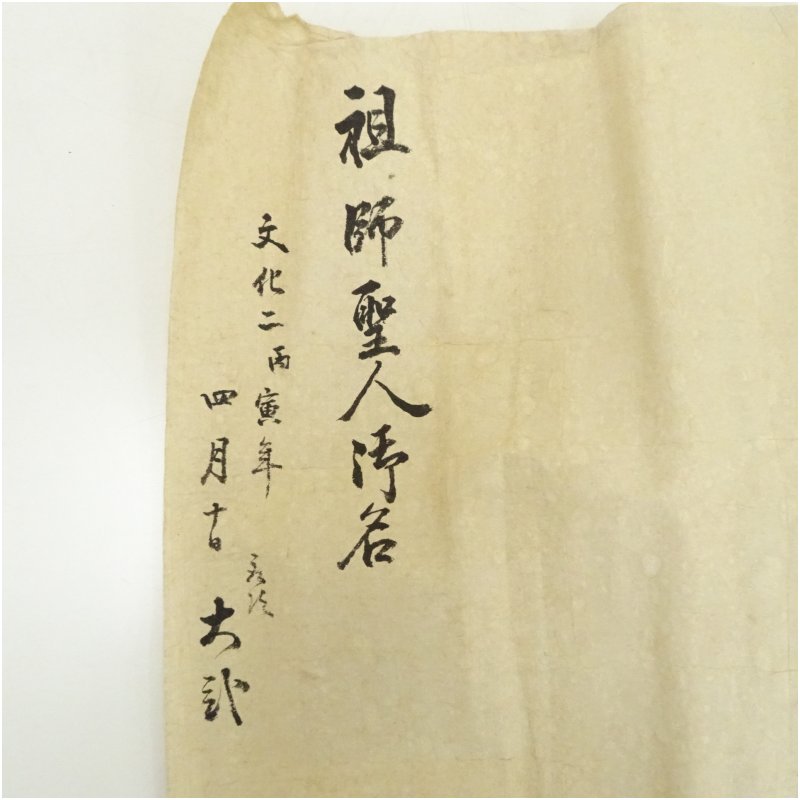 祖師聖人御名
文化二丙寅年
四月十日
大貳